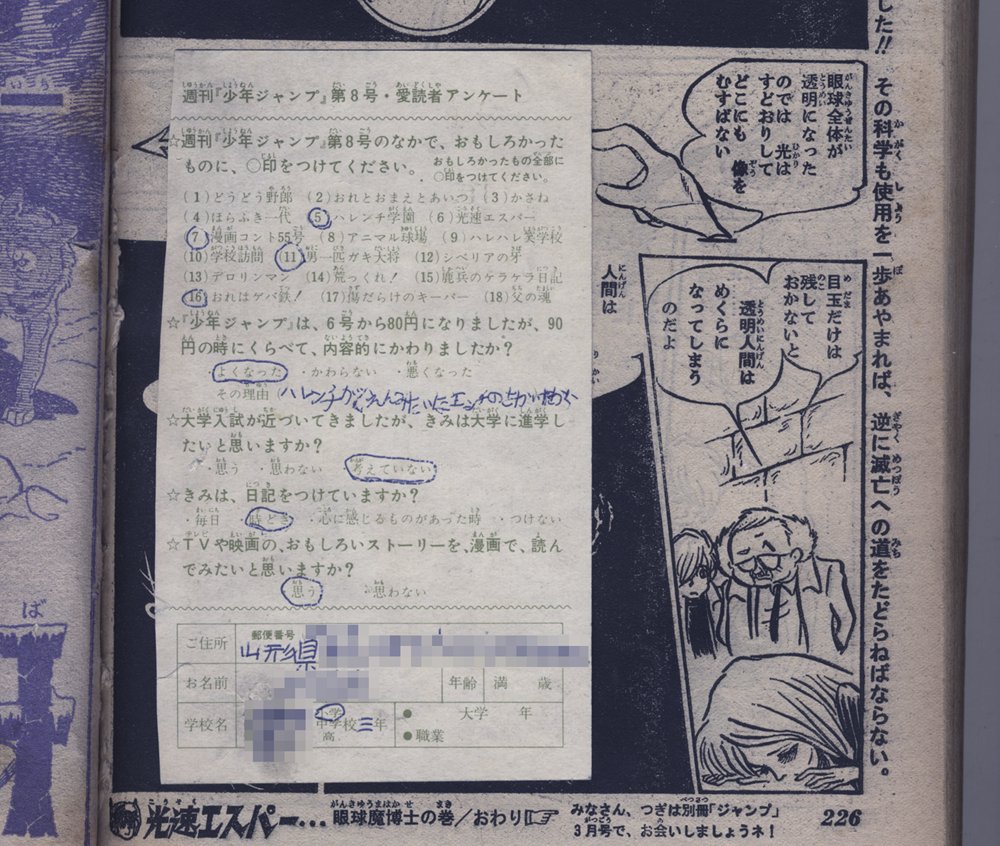 した!!　その科学も使用を一歩あやまれば、逆に滅亡への道をたどらねばならない。
眼球全体が
透明になった
のでは　光は
すどおりして
どこにも　像を
むすばない
目玉だけは
残して
おかないと
透明人間は
めくらに
なってしまう
のだよ
人間は
週刊『少年ジャンプ』第8号・愛読者アンケート
☆週刊『少年ジャンプ』第8号のなかで、おもしろかった
ものに、○印をつけてください。
おもしろかったもの全部に
○印をつけてください。
(1)どうどう野郎 (2)おれとおまえとあいつ (3)かさね
(4)ほらふき一代 (5)ハレンチ学園 (6)光速エスパー
(7)漫画コント55号 (8)アニマル球場 (9)ハレハレ笑学校
(10)学校訪問 (11)男一匹ガキ大将 (12)シベリアの牙
(13)デロリンマン (14)荒っくれ! (15)鹿兵のケラケラ日記
(16)おれはゲバ鉄! (17)傷だらけのキーパー (18)父の魂
☆『少年ジャンプ』は、6号から80円になりましたが、90
円の時にくらべて、内容的にかわりましたか?
よくなった ・かわらない ・悪くなった
その理由(ハレンチがくえんみたいにエッチの
☆大学入試が近づいてきましたが、きみは大学に進学し
たいと思いますか?
・思う ・思わない 考えていない
☆きみは、日記をつけていますか?
・毎日 ・時どき ・心に感じるものがあった時 ・つけない
☆TVや映画の、おもしろいストーリーを、漫画で、読ん
でみたいと思いますか?
思う ・思わない
ご住所 郵便番号
山形県
お名前 年齢 満 歳
学校名 小学 中学校 高 三年 ●大学 年
●職業
いっち
ば
光速エスパー… 眼球魔博士の巻/おわり☞ みなさん、つぎは別冊「ジャンプ」
3月号で、お会いしましょうネ!
226